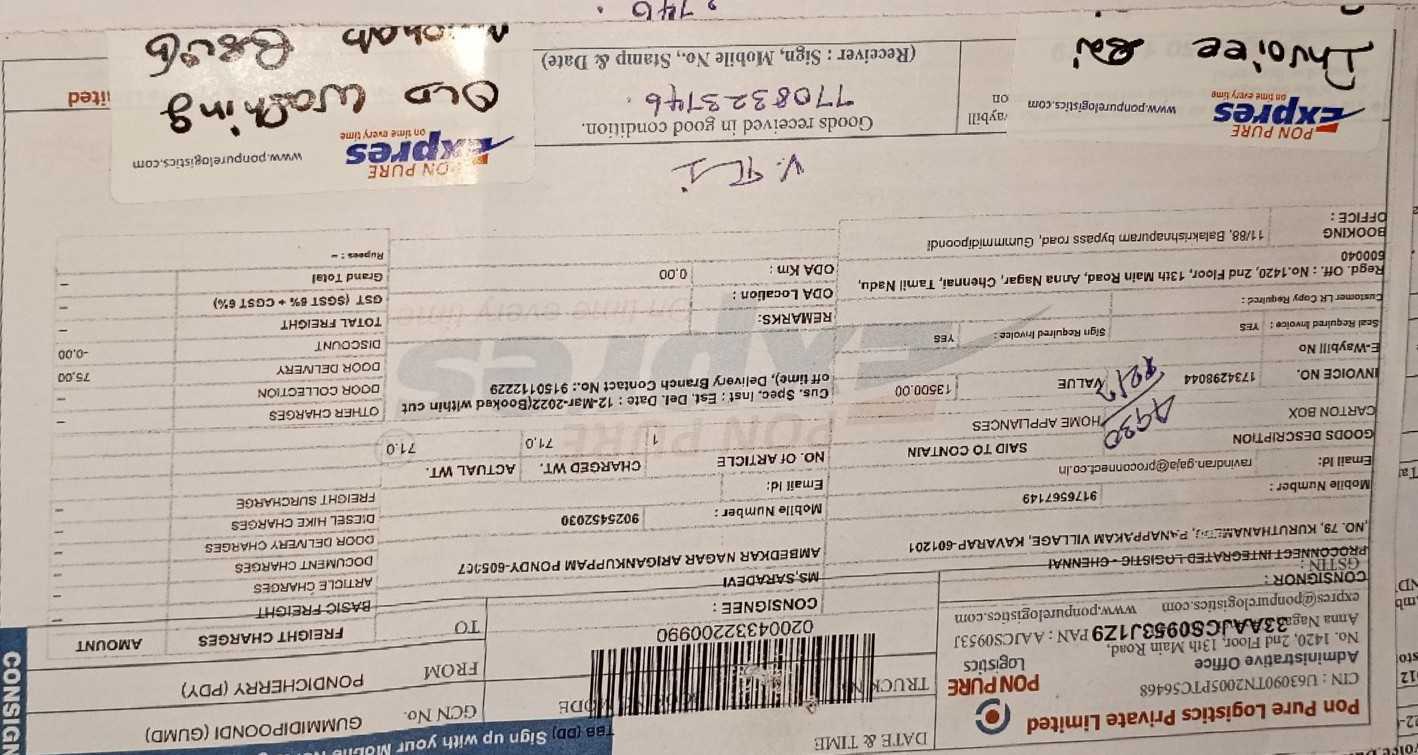 Pon Pure Logistics Private Limited
CIN : U63090TN2005PTC56468
Administrative Office
No. 1420, 2nd Floor, 13th Main Road,
Anna Nagar
33AAJCS0953J1Z9 PAN : AAJCS0953J
expres@ponpurelogistics.com www.ponpurelogistics.com
PON PURE
Logistics
DATE & TIME
TRUCK No
MODE
TBB (DD) Sign up with your Mobile
02004332200990
GCN No.
GUMMIDIPOONDI (GUMD)
FROM
PONDICHERRY (PDY)
TO
CONSIGN
CONSIGNOR :
GSTIN :
PROCONNECT INTEGRATED LOGISTIC - CHENNAI
,NO. 79, KURUTHANAMEDU, PANAPPAKAM VILLAGE, KAVARAP-601201
Mobile Number : 9176567149
Email Id: ravindran.gaja@proconnect.co.in
CONSIGNEE :
MS,SARADEVI
AMBEDKAR NAGAR ARIGANKUPPAM PONDY-605007
Mobile Number : 9025452030
Email Id:
GOODS DESCRIPTION SAID TO CONTAIN
CARTON BOX HOME APPLIANCES
4930
82/12
NO. Of ARTICLE CHARGED WT. ACTUAL WT.
1 71.0 71.0
INVOICE NO. 1734298044 VALUE 13500.00
E-Waybill No
Cus. Spec. Inst : Est. Del. Date : 12-Mar-2022(Booked within cut
off time), Delivery Branch Contact No.: 9150112229
Seal Required Invoice : YES Sign Required Invoice : YES
Customer LR Copy Required :
REMARKS:
ODA Location :
ODA Km : 0.00
Regd. Off. : No.1420, 2nd Floor, 13th Main Road, Anna Nagar, Chennai, Tamil Nadu,
600040
BOOKING
OFFICE : 11/88, Balakrishnapuram bypass road, Gummmidipoondi
FREIGHT CHARGES AMOUNT
BASIC FREIGHT -
ARTICLE CHARGES -
DOCUMENT CHARGES -
DOOR DELIVERY CHARGES -
DIESEL HIKE CHARGES -
FREIGHT SURCHARGE -
OTHER CHARGES -
DOOR COLLECTION -
DOOR DELIVERY 75.00
DISCOUNT -0.00
TOTAL FREIGHT -
GST (SGST 6% + CGST 6%) -
Grand Total -
Rupees : -
PON PURE
Expres
on time every time
Goods received in good condition.
7708323746
(Receiver : Sign, Mobile No., Stamp & Date)
746
aybill
on
PON PURE
Expres
on time every time
www.ponpurelogistics.com
Invoice
PON PURE
Expres
on time every time
www.ponpurelogistics.com
OLD washing
ited